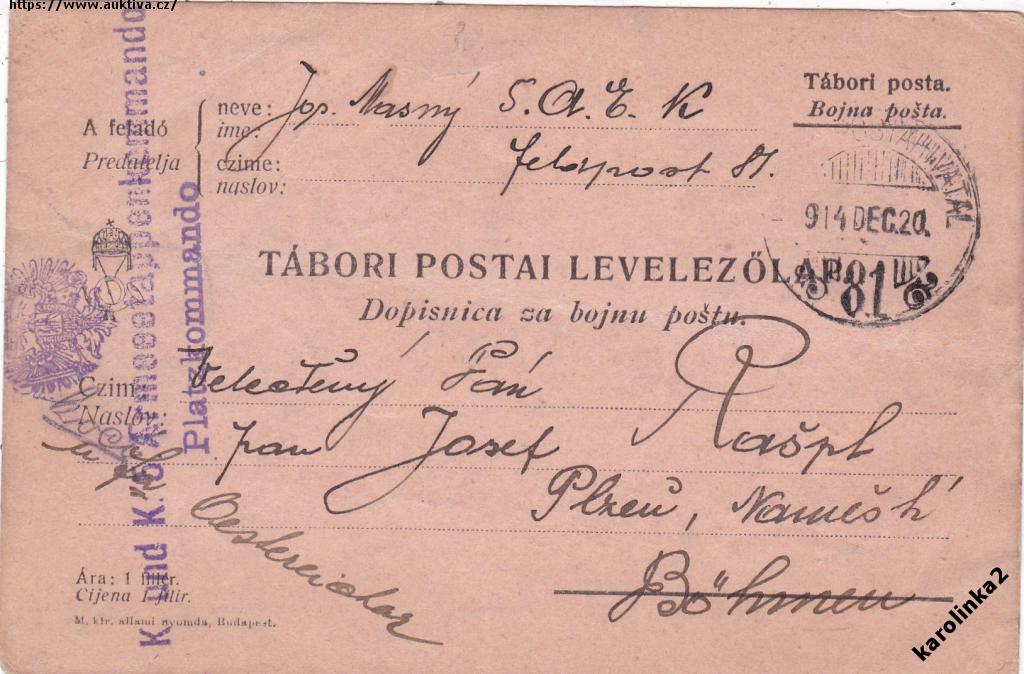 https://www.auktiva.cz/
Tábori posta.
Bojna pošta.
A feladó
Predatelja
neve: Jos. Masný 5. A. E. K
ime:
czime: Feldpost 81.
naslov:
POSTAHIVATAL
914 DEC. 20.
81
TÁBORI POSTAI LEVELEZŐLAP.
Dopisnica za bojnu poštu.
Czim
Naslov:
Velectěný Pán
pan Josef Rašpl
Plzeň,
Böhmen
Oesterreich
K. und K. 5. Armeeetappenkommando
Platzkommando
Ára: 1 fillér.
Cijena 1 filir.
M. kir. állami nyomda, Budapest.
karolinka2